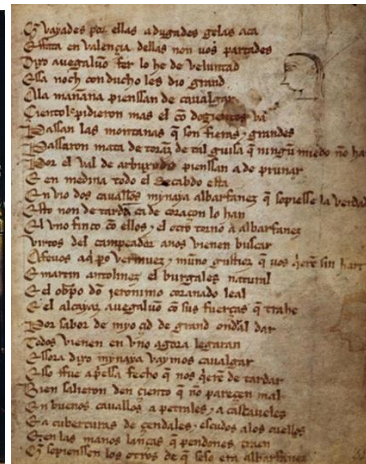 Q̃ vayades por ellas adugades gelas aca
E ffata en valençia dellas non vos partades
Dixo avegaluõ fer lo he de veluntad
Essa noch conducho les dio grand
Ala mañana pienssan de caualgar
Çientol pidieron mas el cõ dogientos va
Passan las montanas q̃ son fieras ⁊ grandes
Passaron mata de torãz de tal guisa q̃ ningũ miedo nõ han
Por el val de arbuxedo pienssan a de prunar
E en medina todo el Recabdo esta
Envio dos caualleros mynaya albarfanez q̃ sopiesse la verdad
Esto non de tardã ca de coraçon lo han
El vno finco cõ ellos ⁊ el otro torno a albarfanez
Virtos del campeador anos vienen buscar
Afeuos aq̃ pero vermuez ⁊ muño gustioz q̃ vos q̃eren sin hart
E martin antolinez el burgales natural
E el obpo dõ jeronimo coranado leal
E el alcayaz auegaluõ cõ sus fuerças q̃ trahe
Por sabor de myo çid de grand ondral dar
Todos vienen en vno agora legaran
Essora dixo mynaya vaymos caualgar
Esso ffue apriessa fecho q̃ nos q̃eren de tardar
Bien salieron den çiento q̃ nõ pareçen mal
En buenos cauallos a petrales ⁊ a cascaueles
E a cuberturas de çendales ⁊ escudos alos cuellos
E en las manos lanças q̃ pendones traen
Q̃ sopienssen los otros de q̃ seso era albarfanez